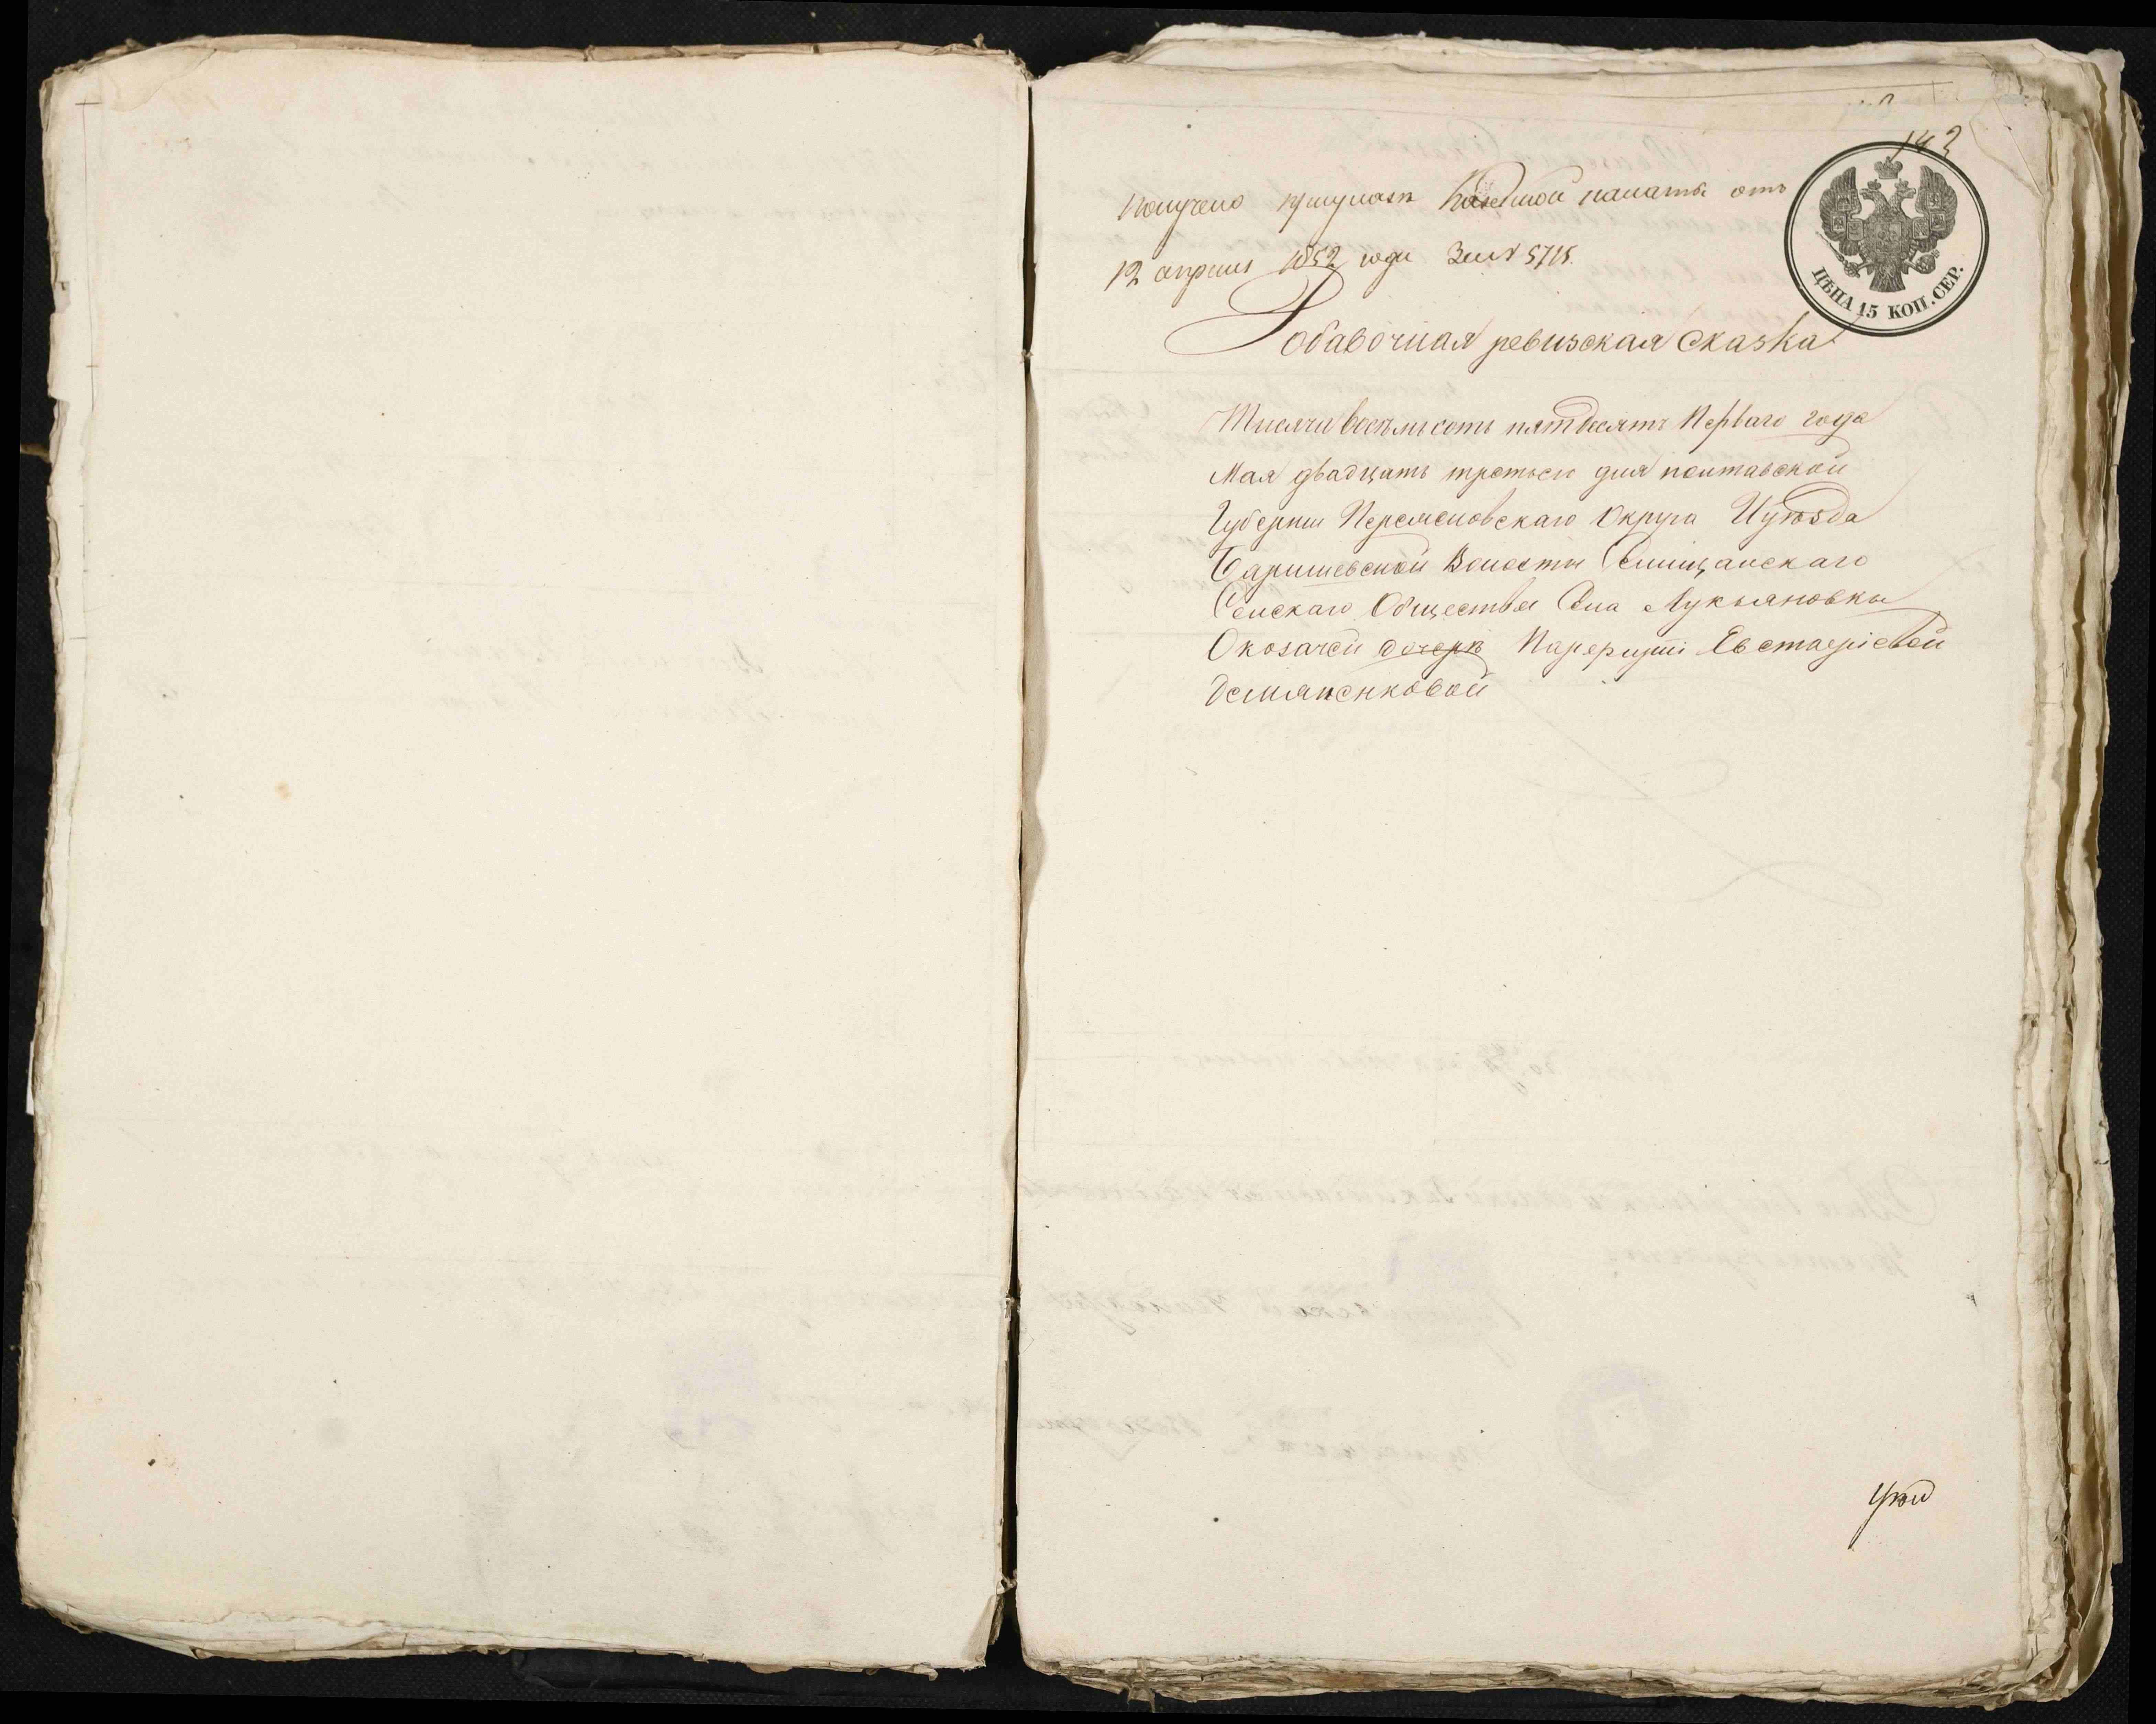 143
Получено при указе Казенной палаты отъ
12 апреля 1852 года за № 5715.
ЦѢНА 15 КОП. СЕР.
Добавочная ревизская сказка
Тисяча восемьсотъ пятдесятъ Перваго года
Мая двадцать третьего дня полтавской
Губернии Переяславского Округа И уѣзда
Баришевской Волости Селищанскаго
Сельскаго Общества Села Лукьяновки
О козачей дочерѣ Евстафіевой
Демяненковой